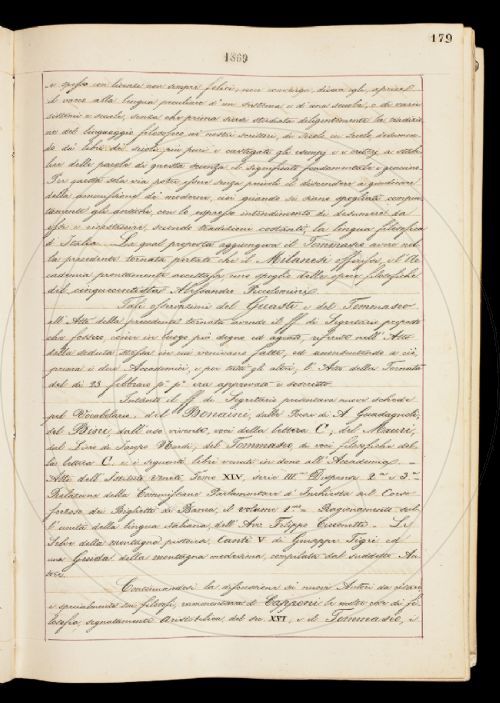 179
1869
e spesso con licenze non sempre felici, non convenga, dissi egli, aprirsi
le vocee alla lingua peculiare d'un sistema o d'una scuola, o di varii
sistemi e scuole, senza che prima siasi studiata diligentemente la tradizio
ne del linguaggio filosofico ne' nostri scrittori, di secolo in secolo
da' libri del secolo più puri e castigati gli esempj e a stabi
lire delle parole di questa scienza il significato fondamentale e genuino.
Per questa sola via potersi senza pericolo il discendere a giudicare
della ammissione de' moderni, cioè quando si siano spogliati compiu
tamente gli antichi, con lo espresso intendimento di desumere da
essi e ricostituire, secondo tradizione costante, la lingua filosofica
d'Italia. La qual proposta aggiungeva il Tommaseo avere nel
la precedente tornata portato che il Milanesi offrisse, e l'Ac
cademia prontamente accettasse uno spoglio delle opere filosofiche
del cinquecentista Alessandro Piccolomini.
Tali osservazioni del Guasti e del Tommaseo
all'Atto della precedente tornata avendo il ff. di Segretario pregato
che fossero, come in luogo più degno ed agiato, riferite nell'Atto
della seduta stessa in cui venivano fatte, ed acconsentendo a ciò
prima i due Accademici, e poi tutti gli altri, l'Atto della Tornata
del dì 23 febbraio p.° p.° era approvato e soscritto.
Intanto il ff. di Segretario presentava nuove schede
pel Vocabolario, del Bonaini, dalle Poesie di A. Guadagnoli,
del Bini, dall'uso vivente, voci della lettera C, del Mauri,
dal Livio di Jacopo Nardi, del Tommaseo, di voci filosofiche del
la lettera C. e i seguenti libri venuti in dono all'Accademia. –
Atti dell'Istituto Veneto Tomo XIV, serie III.ª Dispensa 2.ª e 3.ª –
Relazione della Commissione Parlamentare d'Inchiesta sul Corso
forzoso dei Biglietti di Banca, il volume 1.mo – Ragionamento sul
l'unità della lingua italiana, dell'Avv. Filippo Cicconetti. – Le
Selve della montagna pistoiese, Canti V di Giuseppe Tigri ed
una Guida della montagna medesima, compilata dal suddetto Au
tore.
Continuandosi la discussione su nuovi Autori da citarsi
e specialmente sui filosofi, rammentava il Capponi le molte opere di fi
losofia, segnatamente aristotelica, del sec. XVI, e il Tommaseo, i